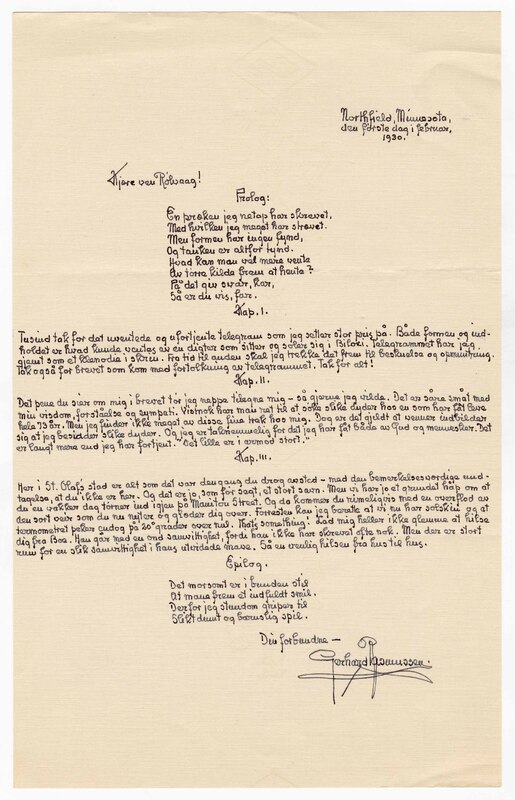 Northfield, Minnesota,
den första dag i februar,
1930.
Kjære ven Rölvaag!
Prolog:
En præken jeg netop har skrevet,
Med hvilken jeg meget har strævet.
Men formen har ingen lynd,
Og tanken er altfor tynd.
Hvad kan man vel mere vente
Av törre kilde frem at hente?
På det giv svar, kar,
Så er du vis, far.
Kap. I.
Tusind tak for det uventede og ufortjente telegram som jeg setter stor pris på. Både formen og ind-
holdet er hvad kunde ventes av en digter som sitter og soler sig i Biloxi. Telegrammet har jeg
gjemt som et klenodie i skrin. Fra tid til anden skal jeg trekke det frem til beskuelse og opmuntring.
Tak også for brevet som kom med fortolkning av telegrammet. Tak for alt!
Kap. II.
Det pene du sier om mig i brevet tör jeg neppe tilegne mig – så gjerne jeg vilde. Det er såre smat med
min visdom, forståelse og sympati. Visnok har man ret til at söke slike dyder hos en som har fåt leve
hele 73 år. Men jeg finder ikke meget av disse fine træk hos mig. Dog er det gildt at venner indbilder
sig at jeg besidder slike dyder. Og jeg er taknemmelig for det jeg har fåt både av Gud og mennesker. Det
er langt mere end jeg har fortjent. "Det lille er i armod stort."
Kap. III.
Her i St. Olafs stad er alt som det var den gang du drog avsted – med den bemerkelsesverdige und-
tagelse, at du ikke er her. Og det er jo, som för sagt, et stort savn. Men vi har jo et grundet håp om at
du en vakker dag törner ind igjen på Manitou Street. Og da kommer du rimeligvis med en overflod av
den sort veir som du nu nyter og gleder dig over. Forresten kan jeg berette at vi nu har solskin og at
termometret peker endog på 20 grader over nul. That's something! Lad mig heller ikke glemme at hilse
dig fra Boe. Han går med en ond samvittighet, fordi han ikke har skrevet ofte nok. Men der er stort
rum for en slik samvittighet i hans utvidede mave. Så en venlig hilsen fra hus til hus.
Epilog.
Det morsomt er i bunden stil
At mane frem et indfuldt smil.
Derfor jeg stundom griper til
Slikt dumt og barnslig spil.
Din forbundne –
Gerhard Rasmussen.